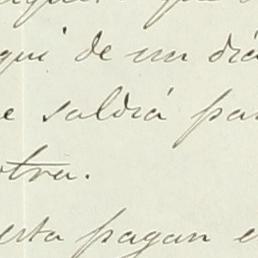 qui de un día
e saldrá par
otra.
esta pagan e